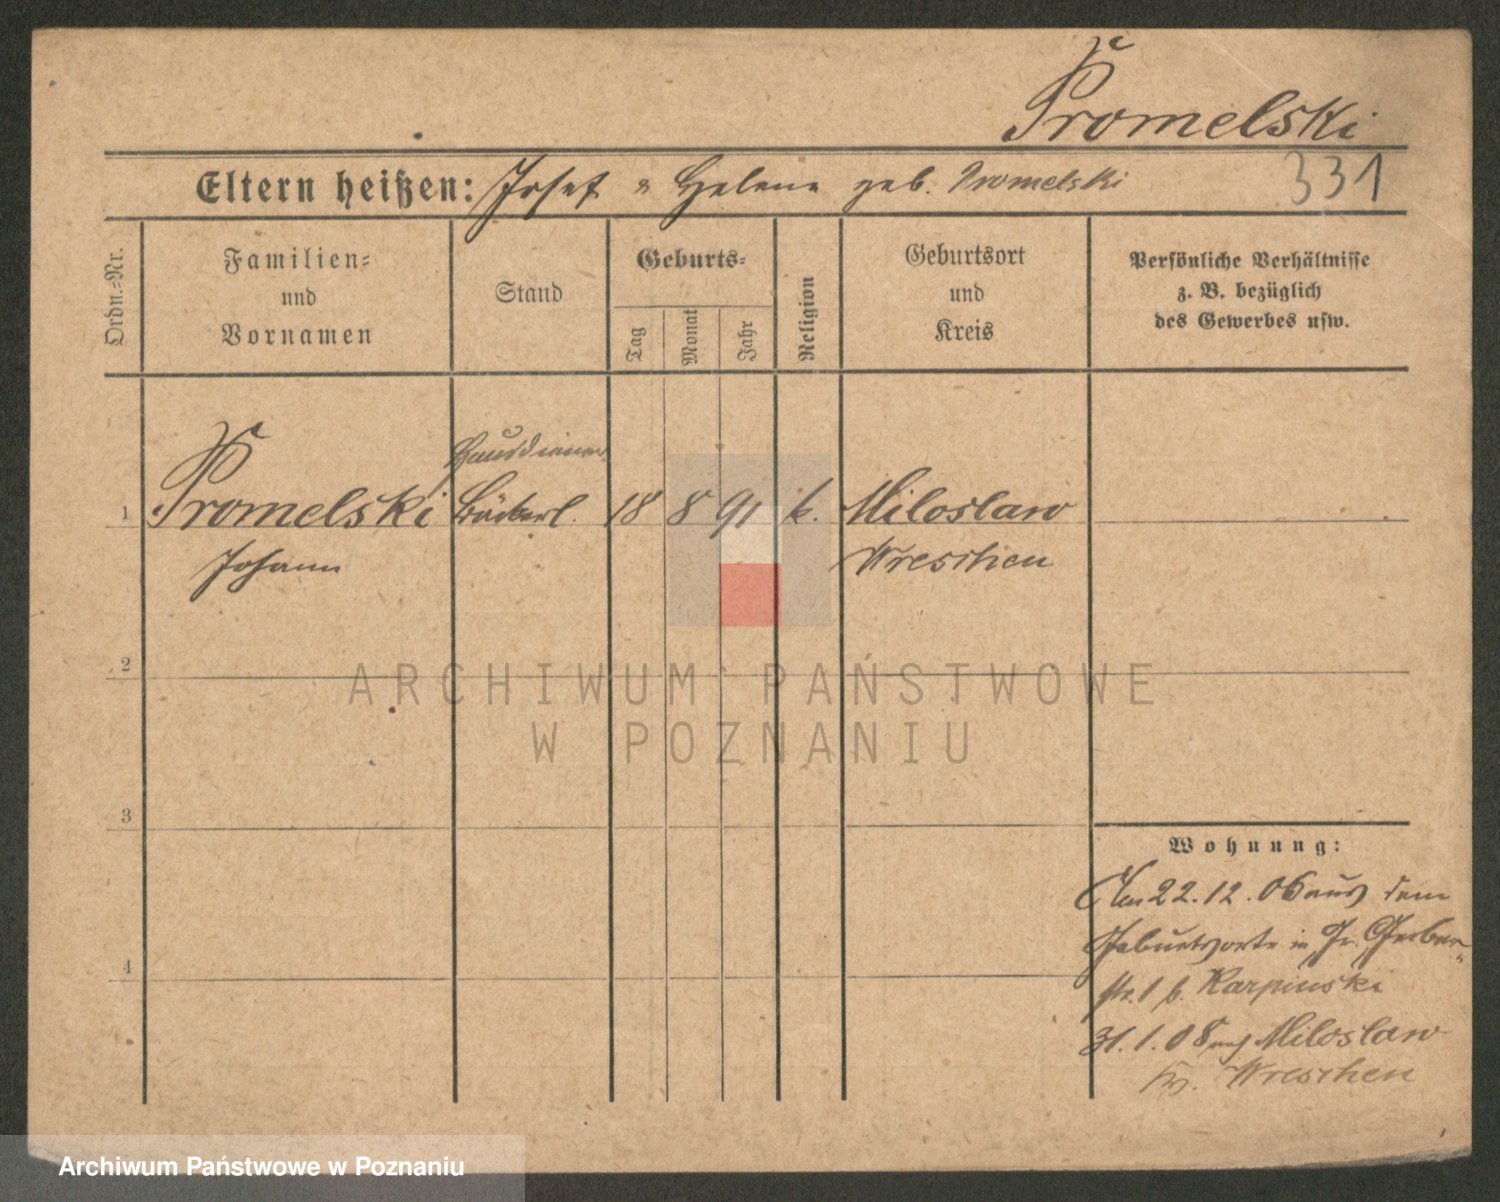 Promelski
Eltern heißen: Josef u Helene geb. Promelski
331
Ordn.-Nr.
Familien-
und
Vornamen
Stand
Geburts-
Tag
Monat
Jahr
Religion
Geburtsort
und
Kreis
Persönliche Verhältnisse
z. B. bezüglich
des Gewerbes usw.
Hausdiener
1 Promelski Bäckerl. 18 8 91 k. Miloslaw
Johann Wreschen
2
ARCHIWUM PAŃSTWOWE
W POZNANIU
3
Wohnung:
Am 22.12.06 aus dem
Geburtsorte in Gr. Gerber-
4
str. 1 b. Karpinski
31.1.08 nach Miloslaw
Kr. Wreschen
Archiwum Państwowe w Poznaniu